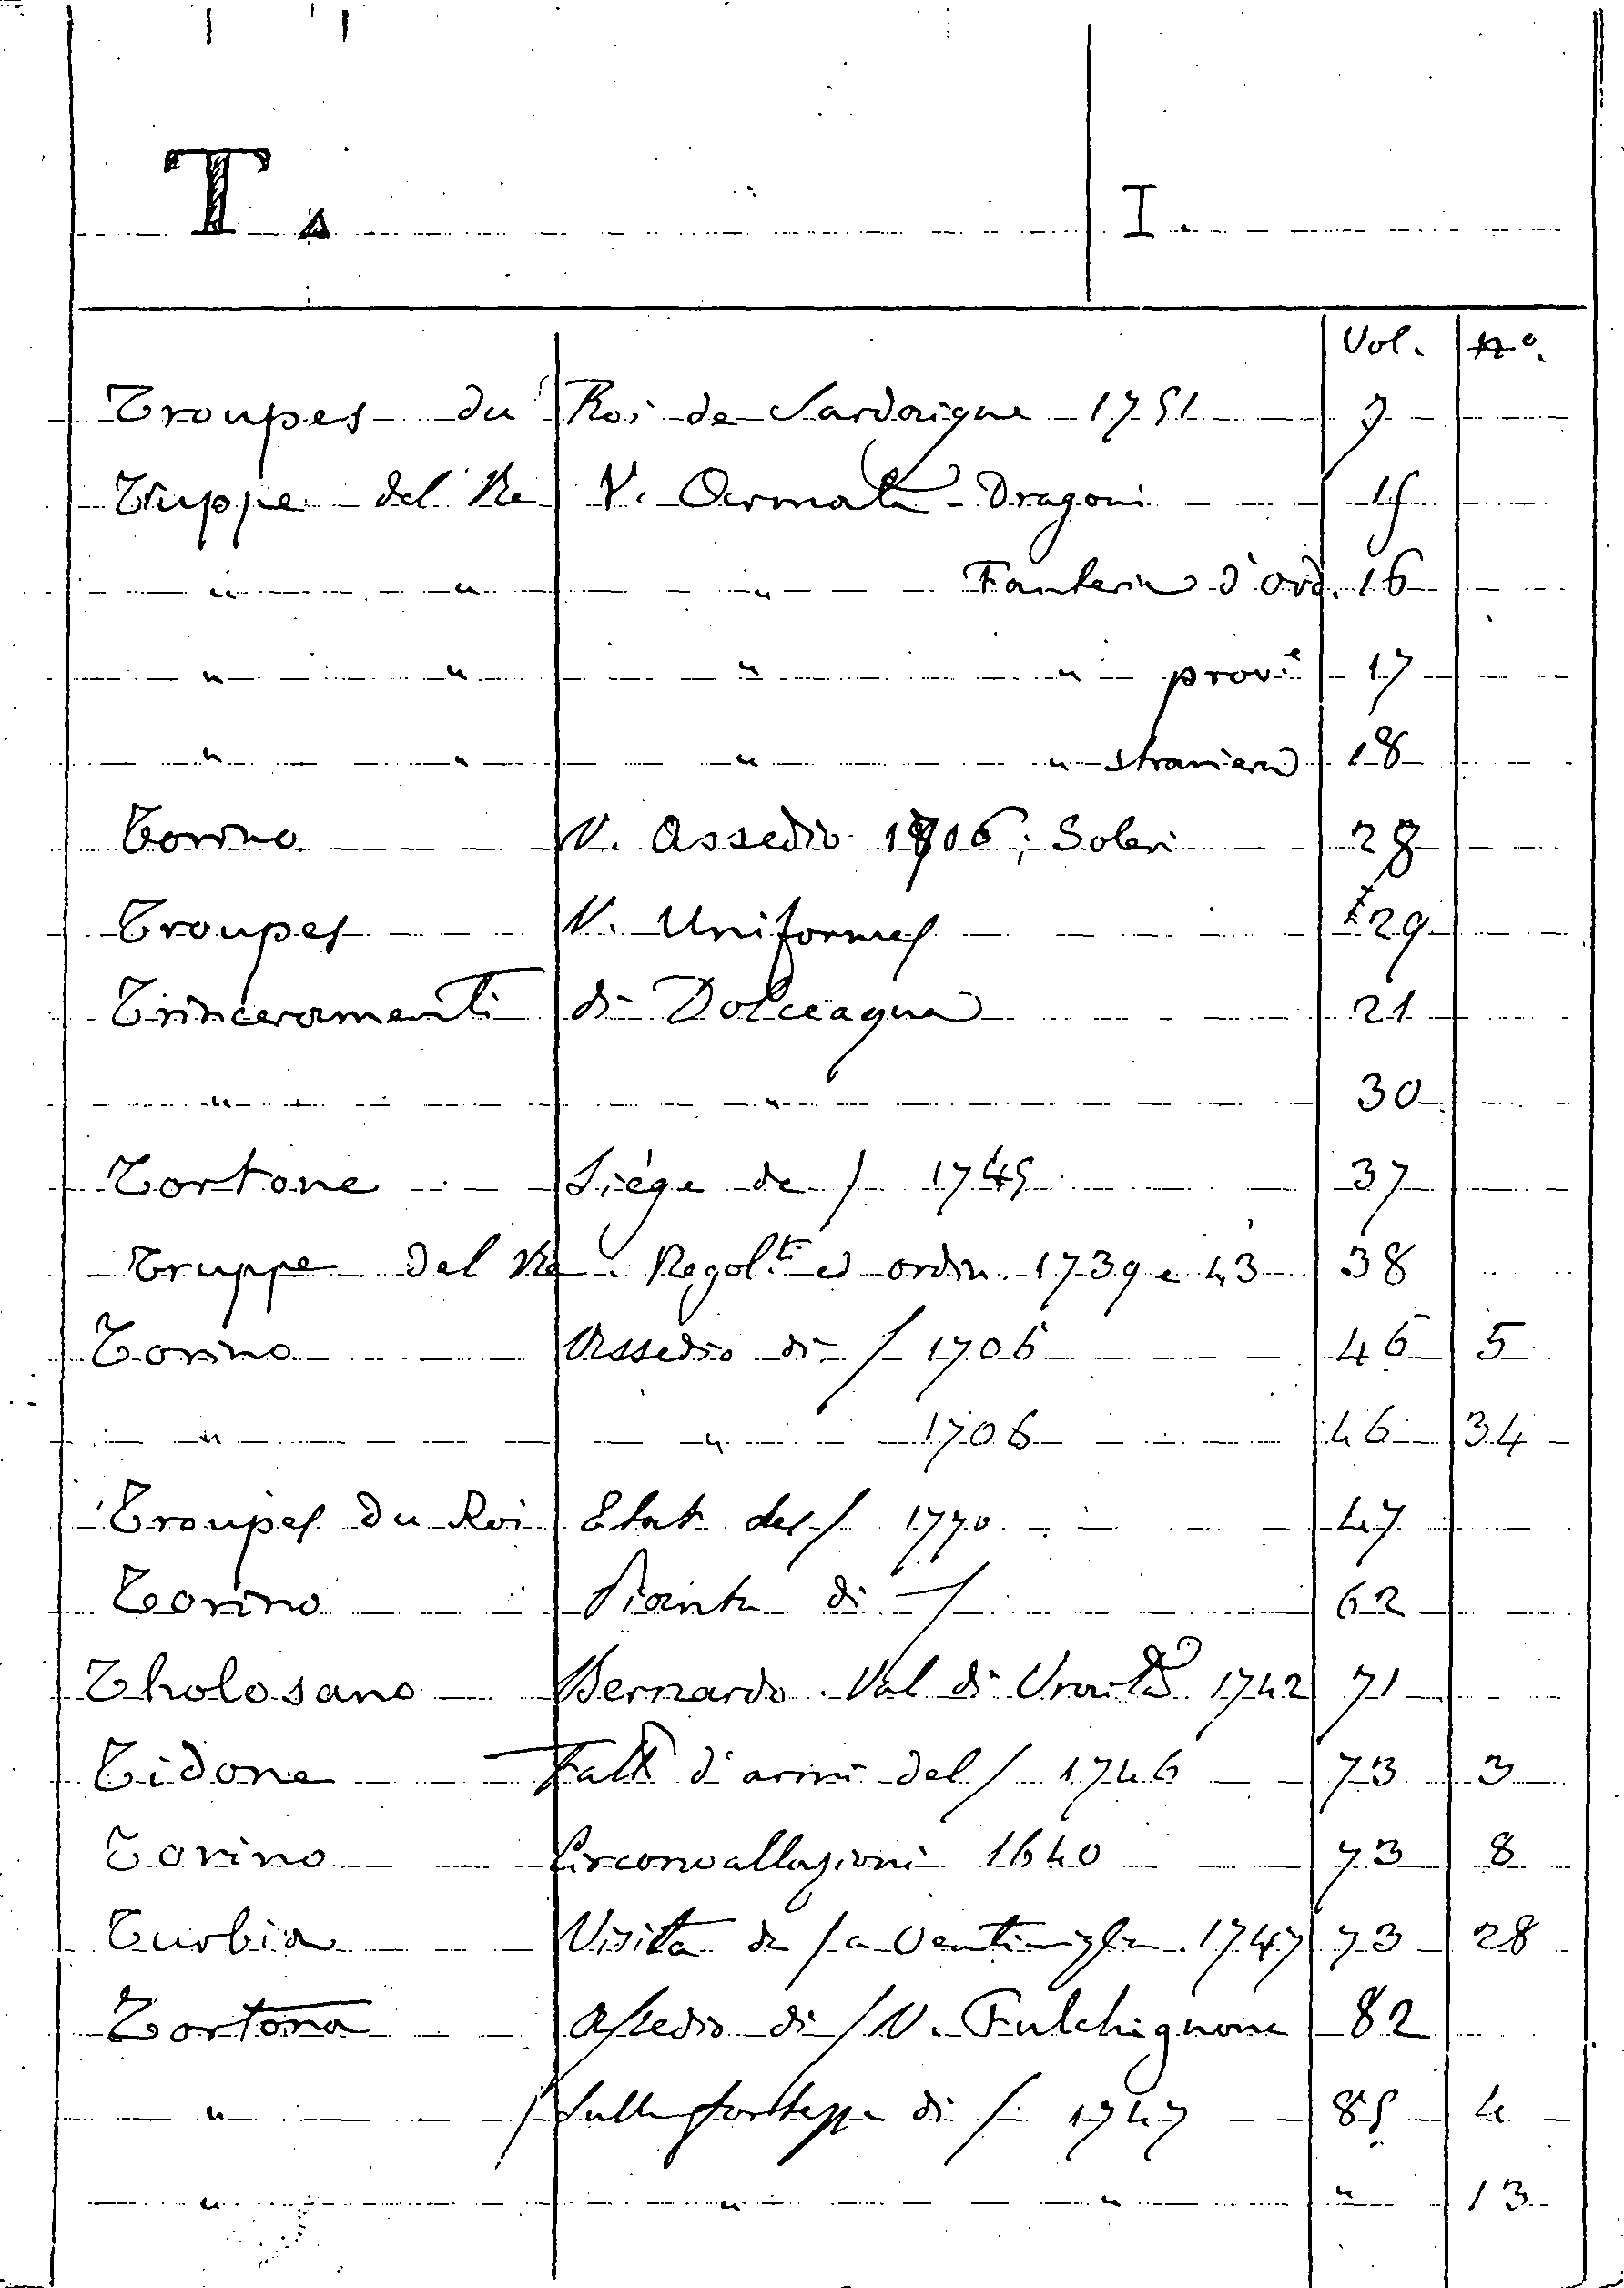 T. I.
Vol. no.
Troupes du Roi de Sardaigne 1751 7
Truppe del Re V. Armata - Dragoni 15
" " " Fanteria d'ord. 16
" " " " prov.e 17
" " " " straniera 18
Torino V. Assedio 1706; Soleri 28
Troupes V. Uniformes 29
Trinceramenti di Dolceaqua 21
" " 30
Tortone Siége de / 1745 37
Truppe del Re. Regol.ti ed ordin. 1739 e 43 38
Torino Assedio di / 1706 46 5
" " 1706 46 34
Troupes du Roi Etat des / 1770 47
Torino Pianta di / 62
Tholosano Bernardo. Val di Vraita 1742 71
Tidone Fatti d'armi del / 1746 73 3
Torino Circonvallazioni 1640 73 8
Turbia Visita da / a Ventimiglia. 1747 73 28
Tortona Assedio di / V. Fulchignone 82
" / Sulla fortezza di / 1747 85 4
" " " " 13